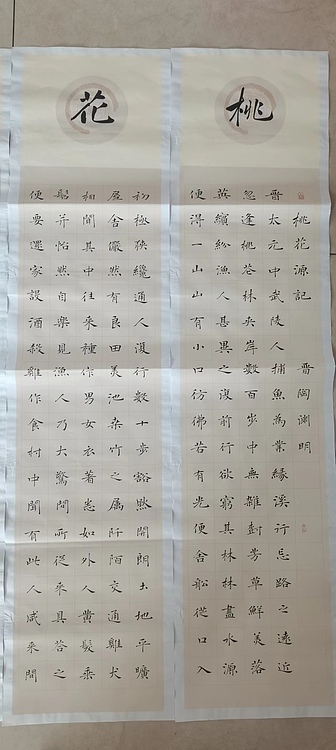 桃
桃花源記 晉陶淵明
晉太元中武陵人捕魚為業緣溪行忘路之遠近
忽逢桃花林夾岸數百步中無雜樹芳草鮮美落
英繽紛漁人甚異之復前行欲窮其林林盡水源
便得一山山有小口彷彿若有光便舍船從口入
花
初極狹纔通人復行數十步豁然開朗土地平曠
屋舍儼然有良田美池桑竹之屬阡陌交通雞犬
相聞其中往來種作男女衣著悉如外人黃髮垂
髫并怡然自樂見漁人乃大驚問所從來具答之
便要還家設酒殺雞作食村中聞有此人咸來問